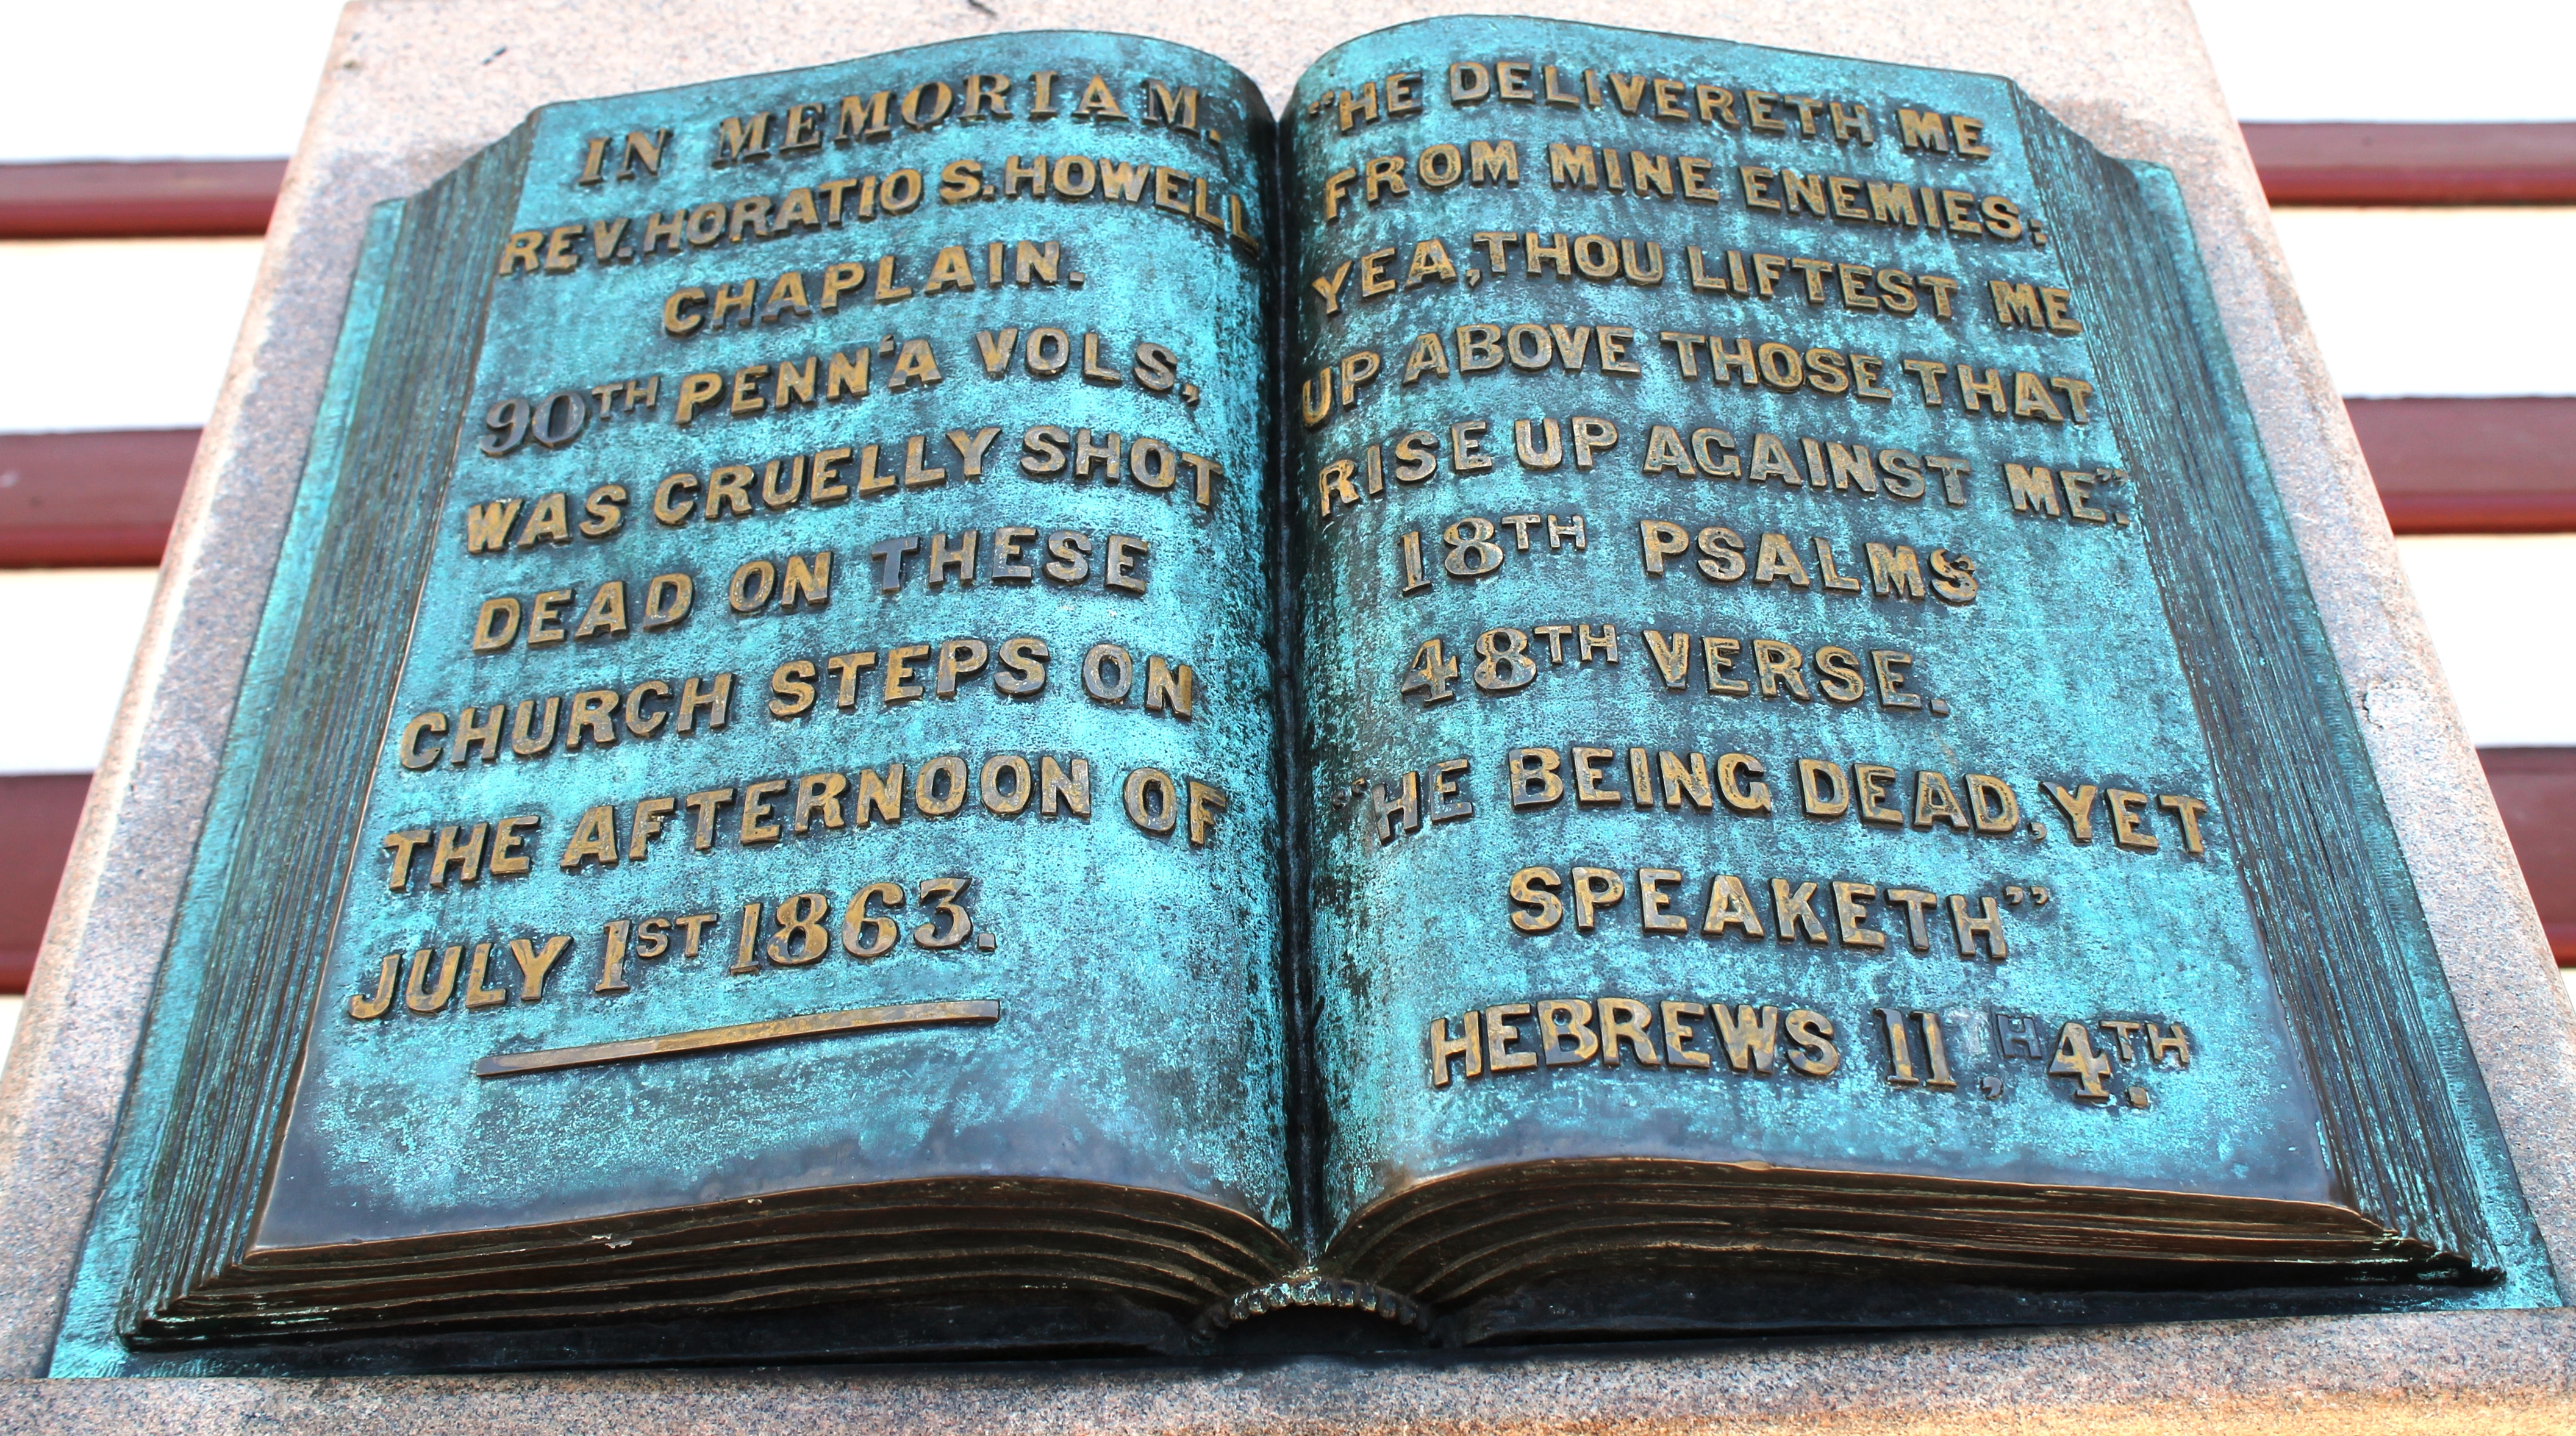 IN MEMORIAM.
REV. HORATIO S. HOWELL
CHAPLAIN.
90TH PENN'A VOLS,
WAS CRUELLY SHOT
DEAD ON THESE
CHURCH STEPS ON
THE AFTERNOON OF
JULY 1ST 1863.
"HE DELIVERETH ME
FROM MINE ENEMIES;
YEA, THOU LIFTEST ME
UP ABOVE THOSE THAT
RISE UP AGAINST ME".
18TH PSALMS
48TH VERSE.
"HE BEING DEAD, YET
SPEAKETH"
HEBREWS 11TH, 4TH.